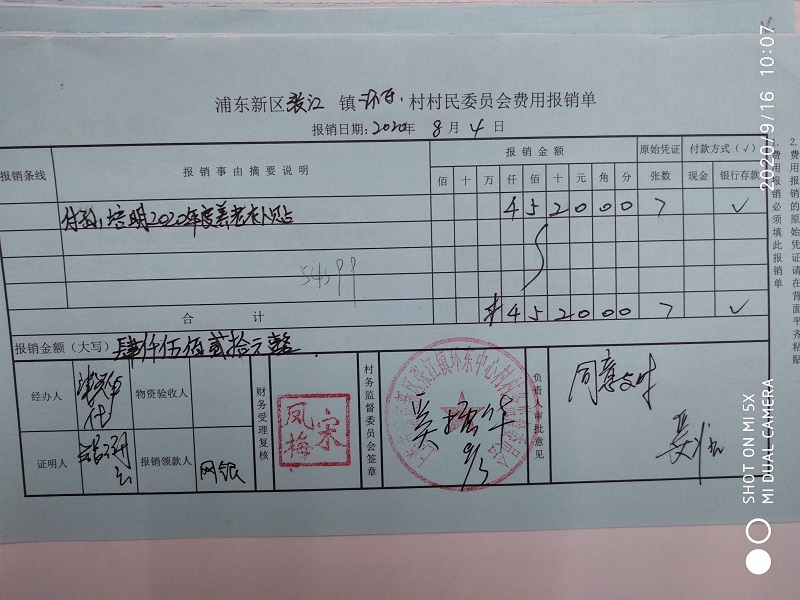 浦东新区张江 镇 环东 村村民委员会费用报销单
报销日期: 2020年 8月 4日
报销条线 报销事由摘要说明 报销金额 原始凭证 付款方式(√)
佰 十 万 仟 佰 十 元 角 分 张数 现金 银行存款
培明2020年度养老 4 5 2 0 0 0 7 √
54599
合 计 ¥ 4 5 2 0 0 0 7 √
报销金额(大写) 肆仟伍佰贰拾元整
经办人 物资验收人 财务受理复核 村务监督委员会签章 负责人审批意见 同意支付
凤梅宋
吴 华
9/3
证明人 报销领款人 网银
1.费用报销必须填此报销单
2.费用报销的原始凭证请在背面平齐粘贴
2020/9/16 10:07
SHOT ON MI 5X
MI DUAL CAMERA